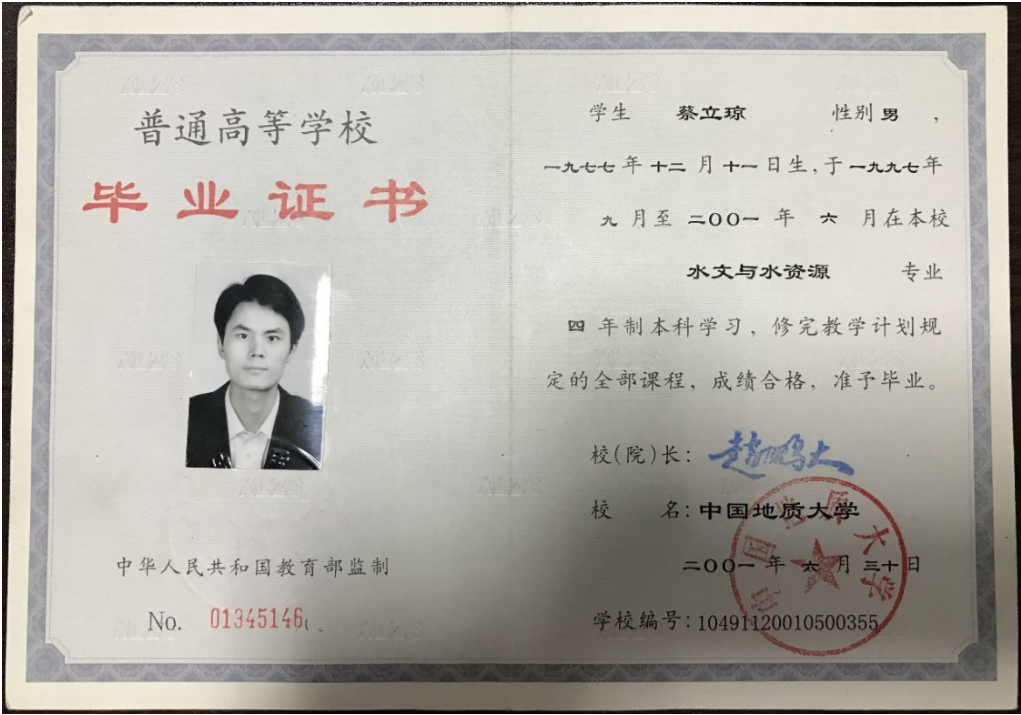 普通高等学校
毕业证书
中华人民共和国教育部监制
No. 01345146
学生 蔡立琼 性别 男 ,
一九七七 年 十二 月 十一 日生, 于 一九九七 年
九 月至 二〇〇一 年 六 月在本校
水文与水资源 专业
四 年制本科学习, 修完教学计划规
定的全部课程, 成绩合格, 准予毕业。
校(院)长: 赵鹏大
校 名: 中国地质大学
二〇〇一 年 六 月 三十 日
学校编号: 10491120010500355
中国地质大学